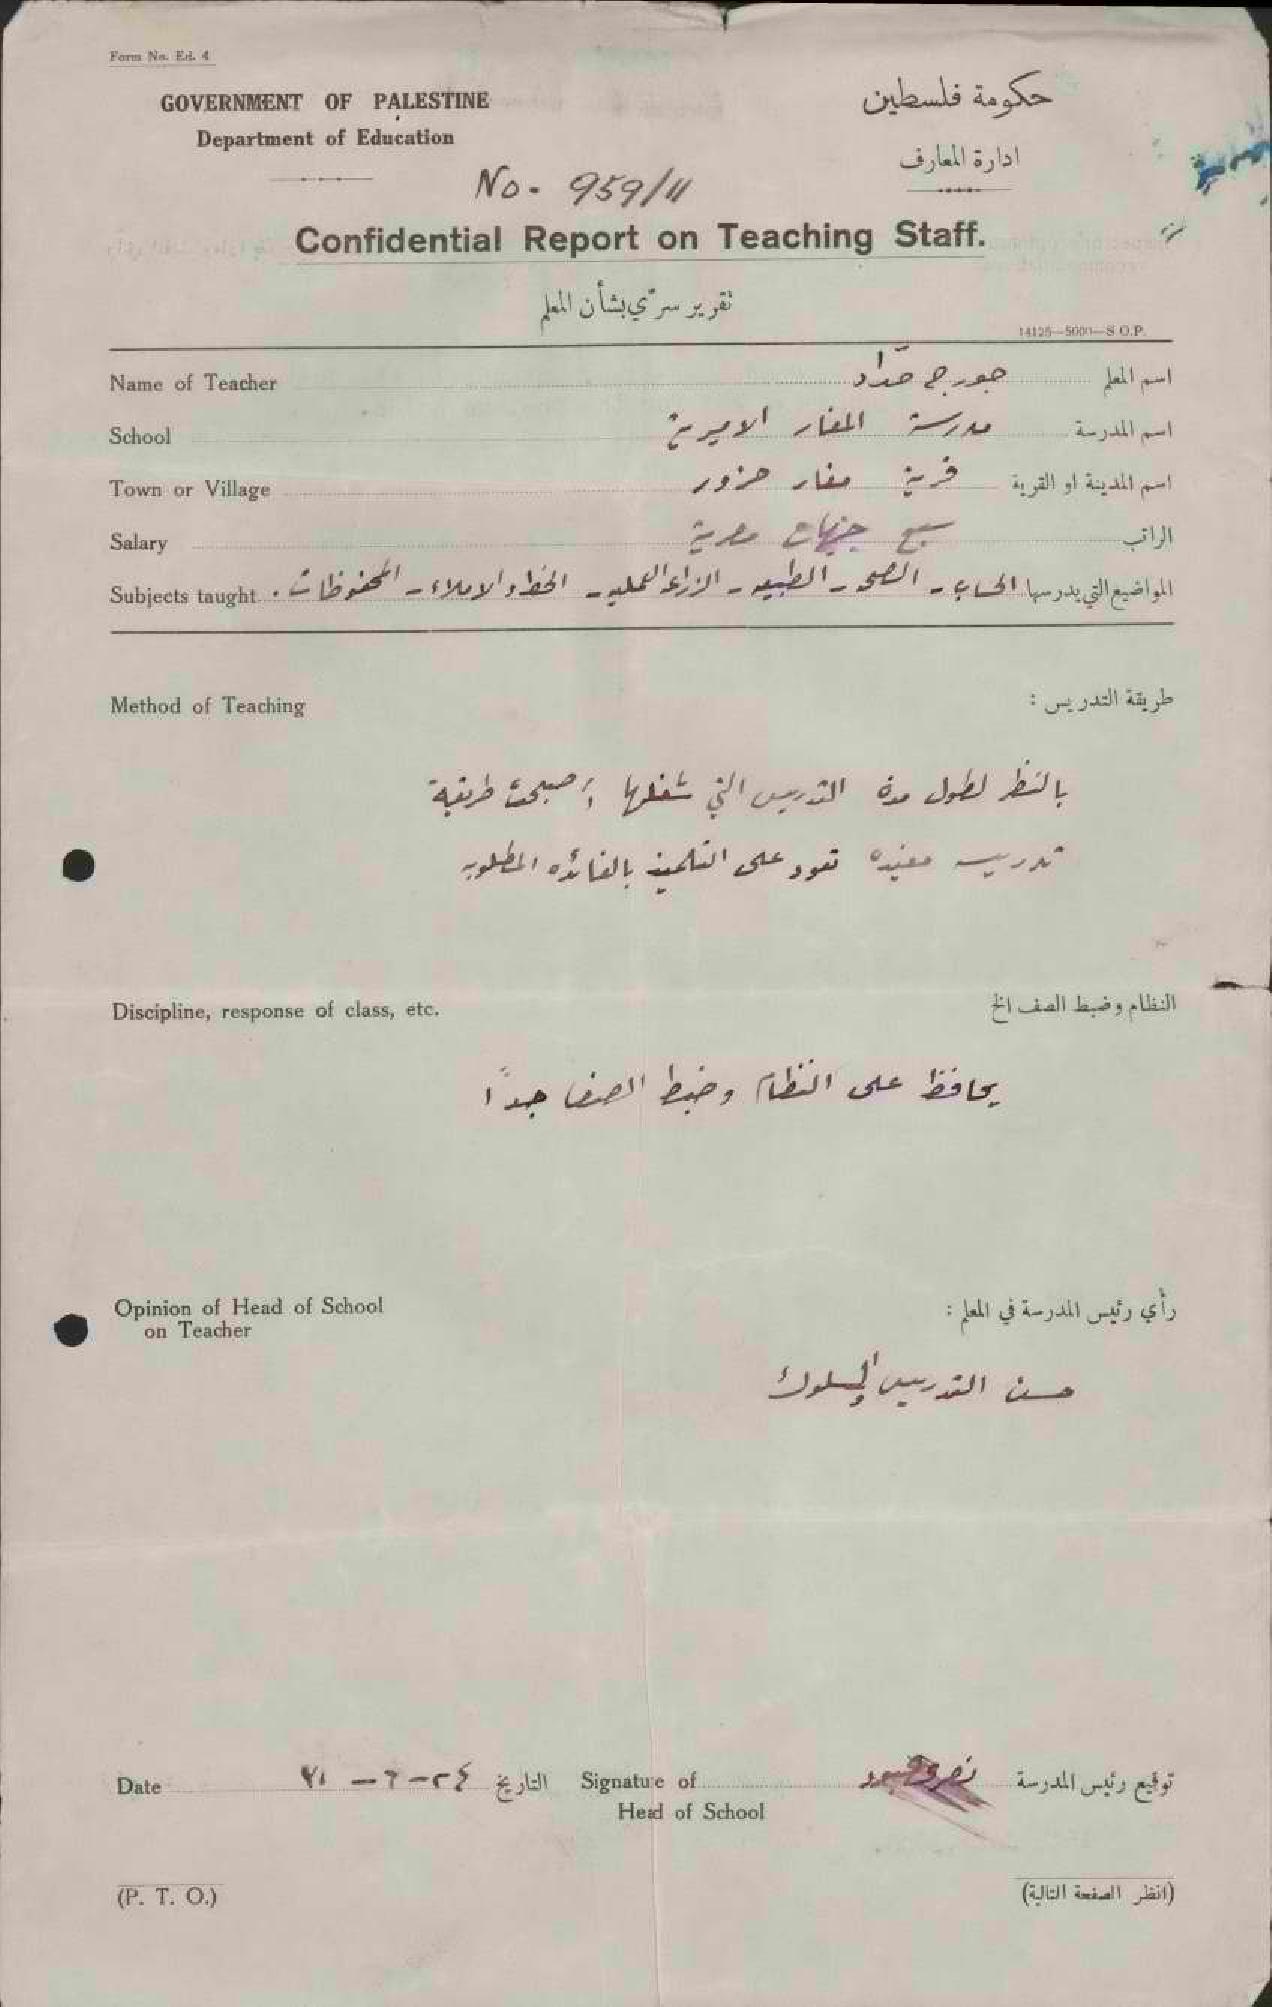 Form No. Ed. 4
GOVERNMENT OF PALESTINE
Department of Education
حكومة فلسطين
ادارة المعارف
No. 959/11
Confidential Report on Teaching Staff.
تقرير سرّي بشأن المعلم
14125—5000—S.O.P.
Name of Teacher جورج حدّاد اسم المعلم
School مدرسة المغار الاميرية اسم المدرسة
Town or Village قرية مغار حزور اسم المدينة او القرية
Salary سبع جنيهات مصرية الراتب
Subjects taught المواضيع التي يدرسها الحساب - الصحه - الطبيعه - الزراعه العمليه - الخط والاملاء - المحفوظات .
Method of Teaching طريقة التدريس :
بالنظر لطول مدة التدريس التي شغلها أصبحت طريقة
تدريسه مفيده تعود على التلاميذ بالفائده المطلوبه
Discipline, response of class, etc. النظام وضبط الصف الخ
يحافظ على النظام وضبط الصف جداً
Opinion of Head of School
on Teacher
رأي رئيس المدرسة في المعلم :
حسن التدريس والسلوك
Date ٢٤-٦- التاريخ Signature of توقيع رئيس المدرسة
Head of School
(P. T. O.) (انظر الصفحة التالية)